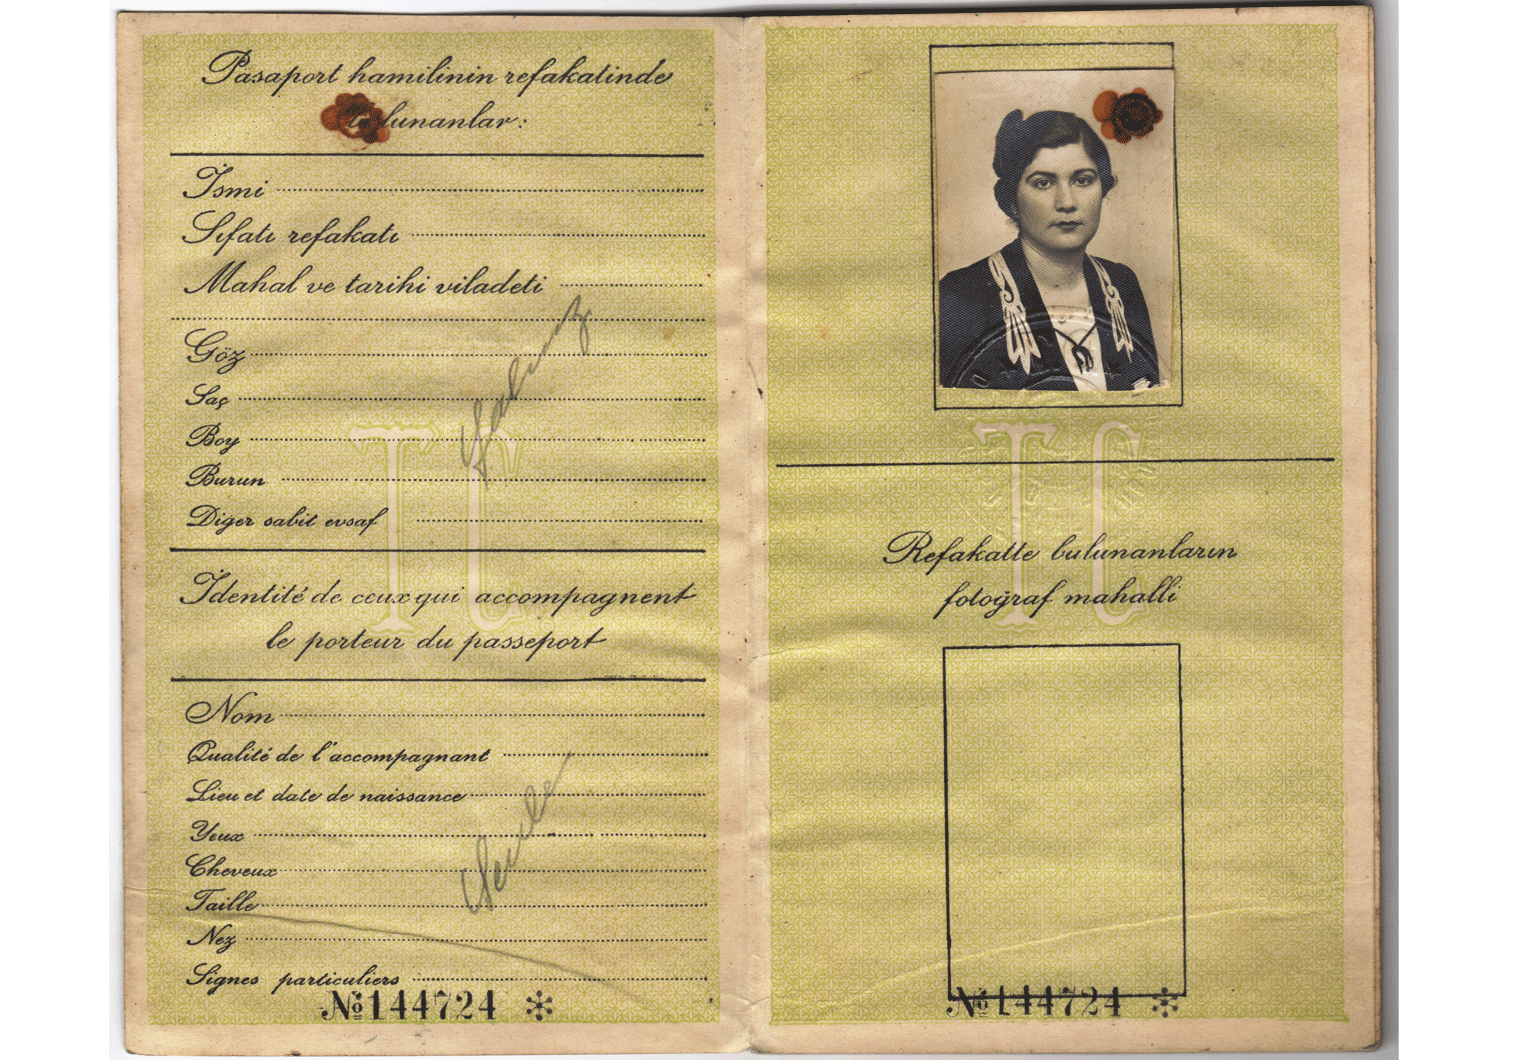 Pasaport hamilinin refakatinde
bulunanlar:
İsmi
Sıfatı refakatı
Mahal ve tarihi viladeti
Göz
Saç
Boy
Burun
Diger sabit evsaf
Yalınız
TC
Identité de ceux qui accompagnent
le porteur du passeport
Nom
Qualité de l'accompagnant
Lieu et date de naissance
Yeux
Cheveux
Taille
Nez
Signes particuliers
Seule
№144724 *
TC
Refakatte bulunanların
fotoğraf mahalli
№144724 *